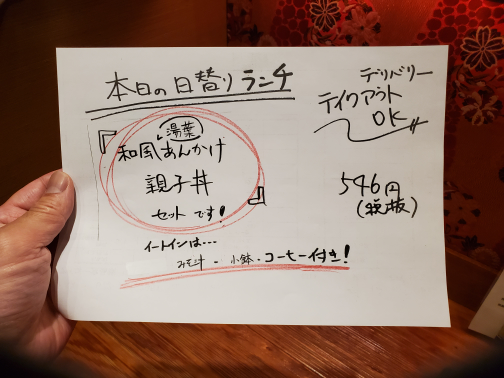 本日の日替りランチ
デリバリー
テイクアウト
OK
『湯葉
和風あんかけ
親子丼
セットです!』
546円
(税抜)
イートインは…
みそ汁・小鉢・コーヒー付き!